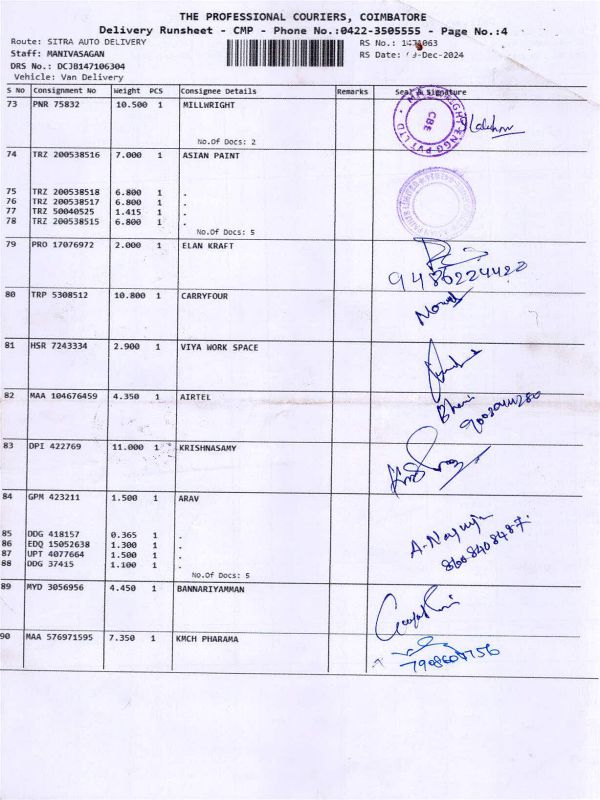 THE PROFESSIONAL COURIERS, COIMBATORE
Delivery Runsheet - CMP - Phone No.:0422-3505555 - Page No.:4
Route: SITRA AUTO DELIVERY
RS No.:
Staff: MANIVASAGAN
RS Date: -Dec-2024
DRS No.: DCJ8147106304
Vehicle: Van Delivery
S No Consignment No Weight PCS Consignee Details Remarks Seal & Signature
73 PNR 75832 10.500 1 MILLWRIGHT
CBE
No.Of Docs: 2
74 TRZ 200538516 7.000 1 ASIAN PAINT
75 TRZ 200538518 6.800 1 .
76 TRZ 200538517 6.800 1 .
77 TRZ 50040525 1.415 1 .
78 TRZ 200538515 6.800 1 .
No.Of Docs: 5
79 PRO 17076972 2.000 1 ELAN KRAFT
9486224420
80 TRP 5308512 10.800 1 CARRYFOUR
81 HSR 7243334 2.900 1 VIYA WORK SPACE
82 MAA 104676459 4.350 1 AIRTEL
83 DPI 422769 11.000 1 KRISHNASAMY
84 GPM 423211 1.500 1 ARAV
85 DDG 418157 0.365 1 .
86 EDQ 15052638 1.300 1 .
87 UPT 4077664 1.500 1 .
88 DDG 37415 1.100 1 .
8608408487
No.Of Docs: 5
89 MYD 3056956 4.450 1 BANNARIYAMMAN
90 MAA 576971595 7.350 1 KMCH PHARAMA